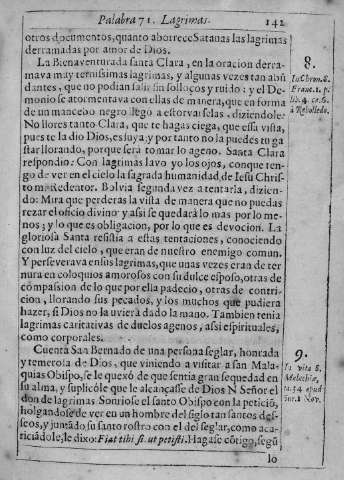 Palabra 71. Lagrimas. 142
otros documentos, quanto aborrece Satanas las lagrimas
derramadas por amor de Dios.
La Bienaventurada santa Clara, en la oracion derra-
mava muy ternissimas lagrimas, y algunas vezes tan abū
dantes, que no podian salir sin solloços y ruido: y el De-
monio se atormentava con ellas de manera, que en forma
de un mancebo negro llegò a estorvarselas, diziendole:
No llores tanto Clara, que te hagas ciega, que essa vista,
pues te la dio Dios, es suya, y por tanto no la puedes tu ga
star llorando, porque serà tomar lo ageno. Santa Clara
respondio: Con lagrimas lavo yo los ojos, conque ten-
go de ver en el cielo la sagrada humanidad de Iesu Chris-
to mi Redentor. Bolvia segunda vez a tentarla, dizien-
do: Mira que perderas la vista de manera que no puedas
rezar el oficio divino y assi se quedarà lo mas por lo me-
nos; y lo que es obligacion, por lo que es devocion. La
gloriosa Santa resistia a estas tentaciones, conociendo
con luz del cielo, que eran de nuestro enemigo comun.
Y perseverava en sus lagrimas, que unas vezes eran de ter-
nura en coloquios amorosos con su dulce esposo, otras de
compassion de lo que por ella padecio, otras de contri-
cion, llorando sus pecados, y los muchos que pudiera
hazer, si Dios no la uviera dado la mano. Tambien tenia
lagrimas caritativas de duelos agenos, assi espirituales,
como corporales.
Cuenta San Bernardo de una persona seglar, honrada
y temerosa de Dios, que viniendo a visitar a san Mala-
quias Obispo, se le quexò de que sentia gran sequedad en
su alma, y suplicóle que le alcançasse de Dios N Señor el
don de lagrimas Sonriose el santo Obispo con la peticiō,
holgandose de ver en un hombre del siglo tan santos des-
seos, y juntādo su santo rostro con el del seglar, como aca-
riciādole, le dixo: Fiat tibi sicut petisti. Hagase cōtigo, segū
lo
8.
In Chron. S.
Franc. 1. p.
lib. 4. ca. 6.
9.
In vita S.
Malachiæ,